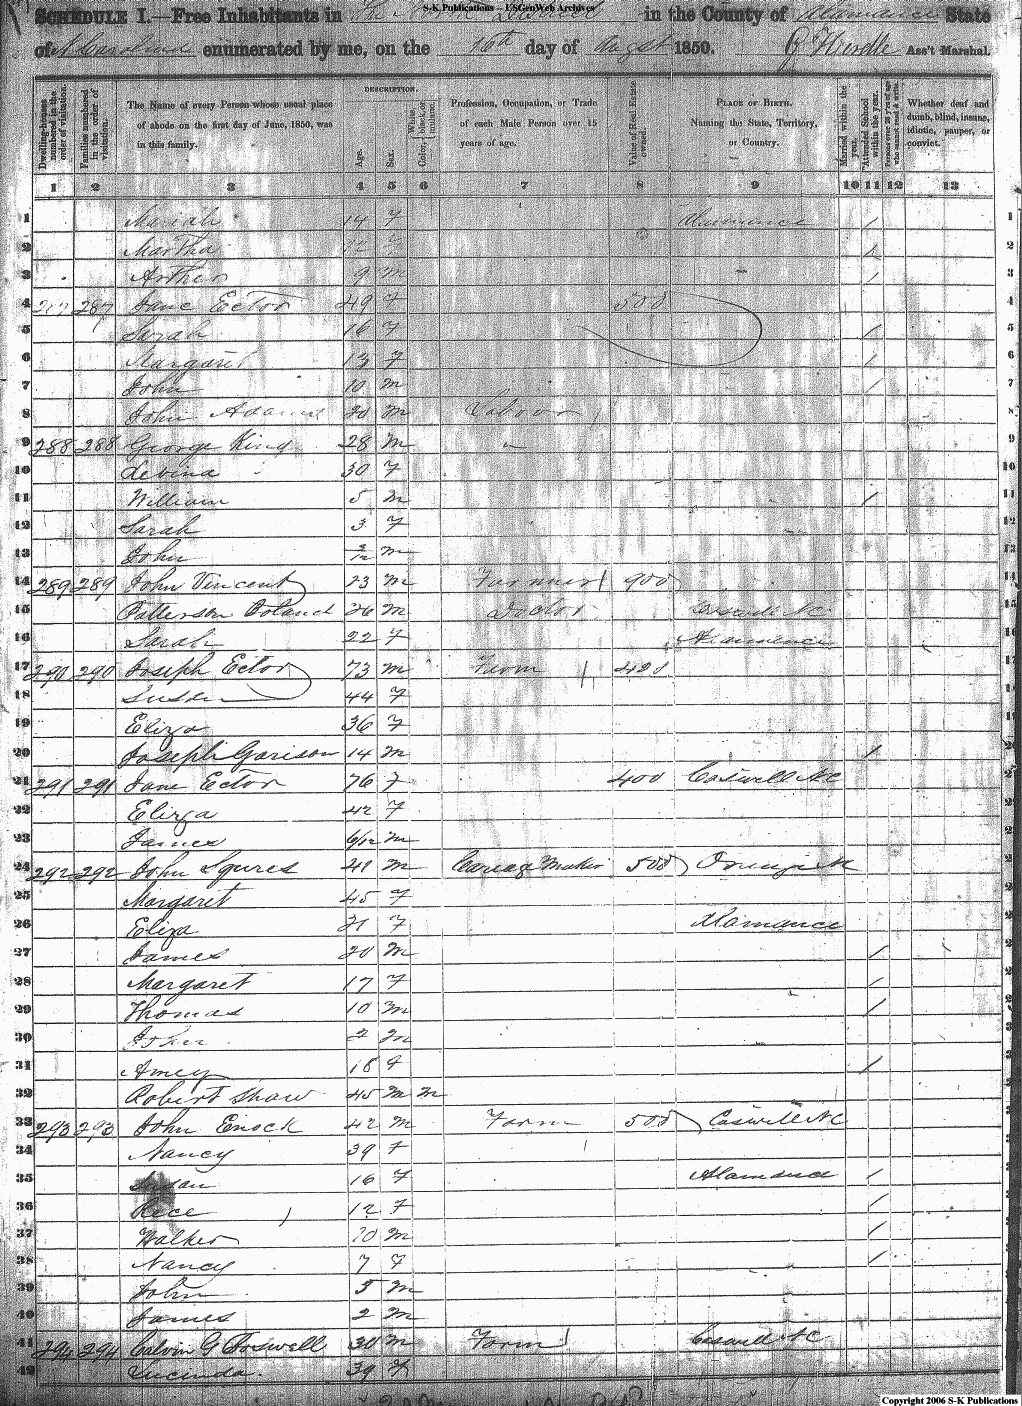 S-K Publications – USGenWeb Archives
SCHEDULE I.—Free Inhabitants in The North District in the County of Alamance State
of N Carolina enumerated by me, on the 16th day of Augst 1850. Ass't Marshal.
Dwelling-houses numbered in the order of visitation.
Families numbered in the order of visitation.
The Name of every Person whose usual place of abode on the first day of June, 1850, was in this family.
DESCRIPTION.
Age.
Sex.
Color, White, black, or mulatto.
Profession, Occupation, or Trade of each Male Person over 15 years of age.
Value of Real Estate owned.
PLACE OF BIRTH. Naming the State, Territory, or Country.
Married within the year.
Attended School within the year.
Persons over 20 years of age who cannot read & write.
Whether deaf and dumb, blind, insane, idiotic, pauper, or convict.
1 2 3 4 5 6 7 8 9 10 11 12 13
1 Mariah 14 F Alamance / 1
2 Martha 12 F / 2
3 Arther 9 m / 3
4 287 Jane Ector 49 F 500 4
5 Sarah 16 F / 5
6 Margaret 13 F / 6
7 John 10 m / 7
8 John Adams 20 m Labour 8
9 288 288 George King 28 m " 9
10 Levina 30 F 10
11 William 5 m / 11
12 Sarah 3 F 12
13 John m 13
14 289 289 John Vincent 73 m Farmer 900
15 Patterson Boland 26 m Doctor Caswell NC
16 Sarah 22 F Alamance
17 290 290 Joseph Ector 73 m Farm
18 Susan 44 F
19 Eliza 36 F
20 Joseph Garison 14 m /
21 291 291 Jane Ector 76 F 400 Caswell NC
22 Eliza 42 F
23 James 6/12 m
24 292 292 John Squres 41 m Cariag Maker 500 Orange N
25 Margaret 45 F
26 Eliza 21 F Alamance
27 James 20 m /
28 Margaret 17 F /
29 Thomas 10 m /
30 John 7 m
31 Amey 18 F /
32 Robert Shaw 45 m m
33 293 293 John Enock 42 m Farm 500 Caswell NC
34 Nancy 39 F
35 Susan 16 F Alamance /
36 Rice 12 F /
37 Walker 10 m /
38 Nancy 7 F /
39 John 5 m
40 James 2 m
41 294 294 Calvin G 30 m Farm Caswell NC
42 Lucinda 39 F
Copyright 2006 S-K Publications